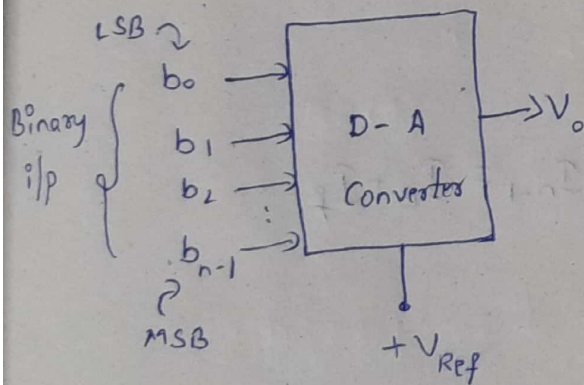 LSB
b0
Binary
i/p
b1
b2
:
bn-1
MSB
D-A
Converter
Vo
+VRef